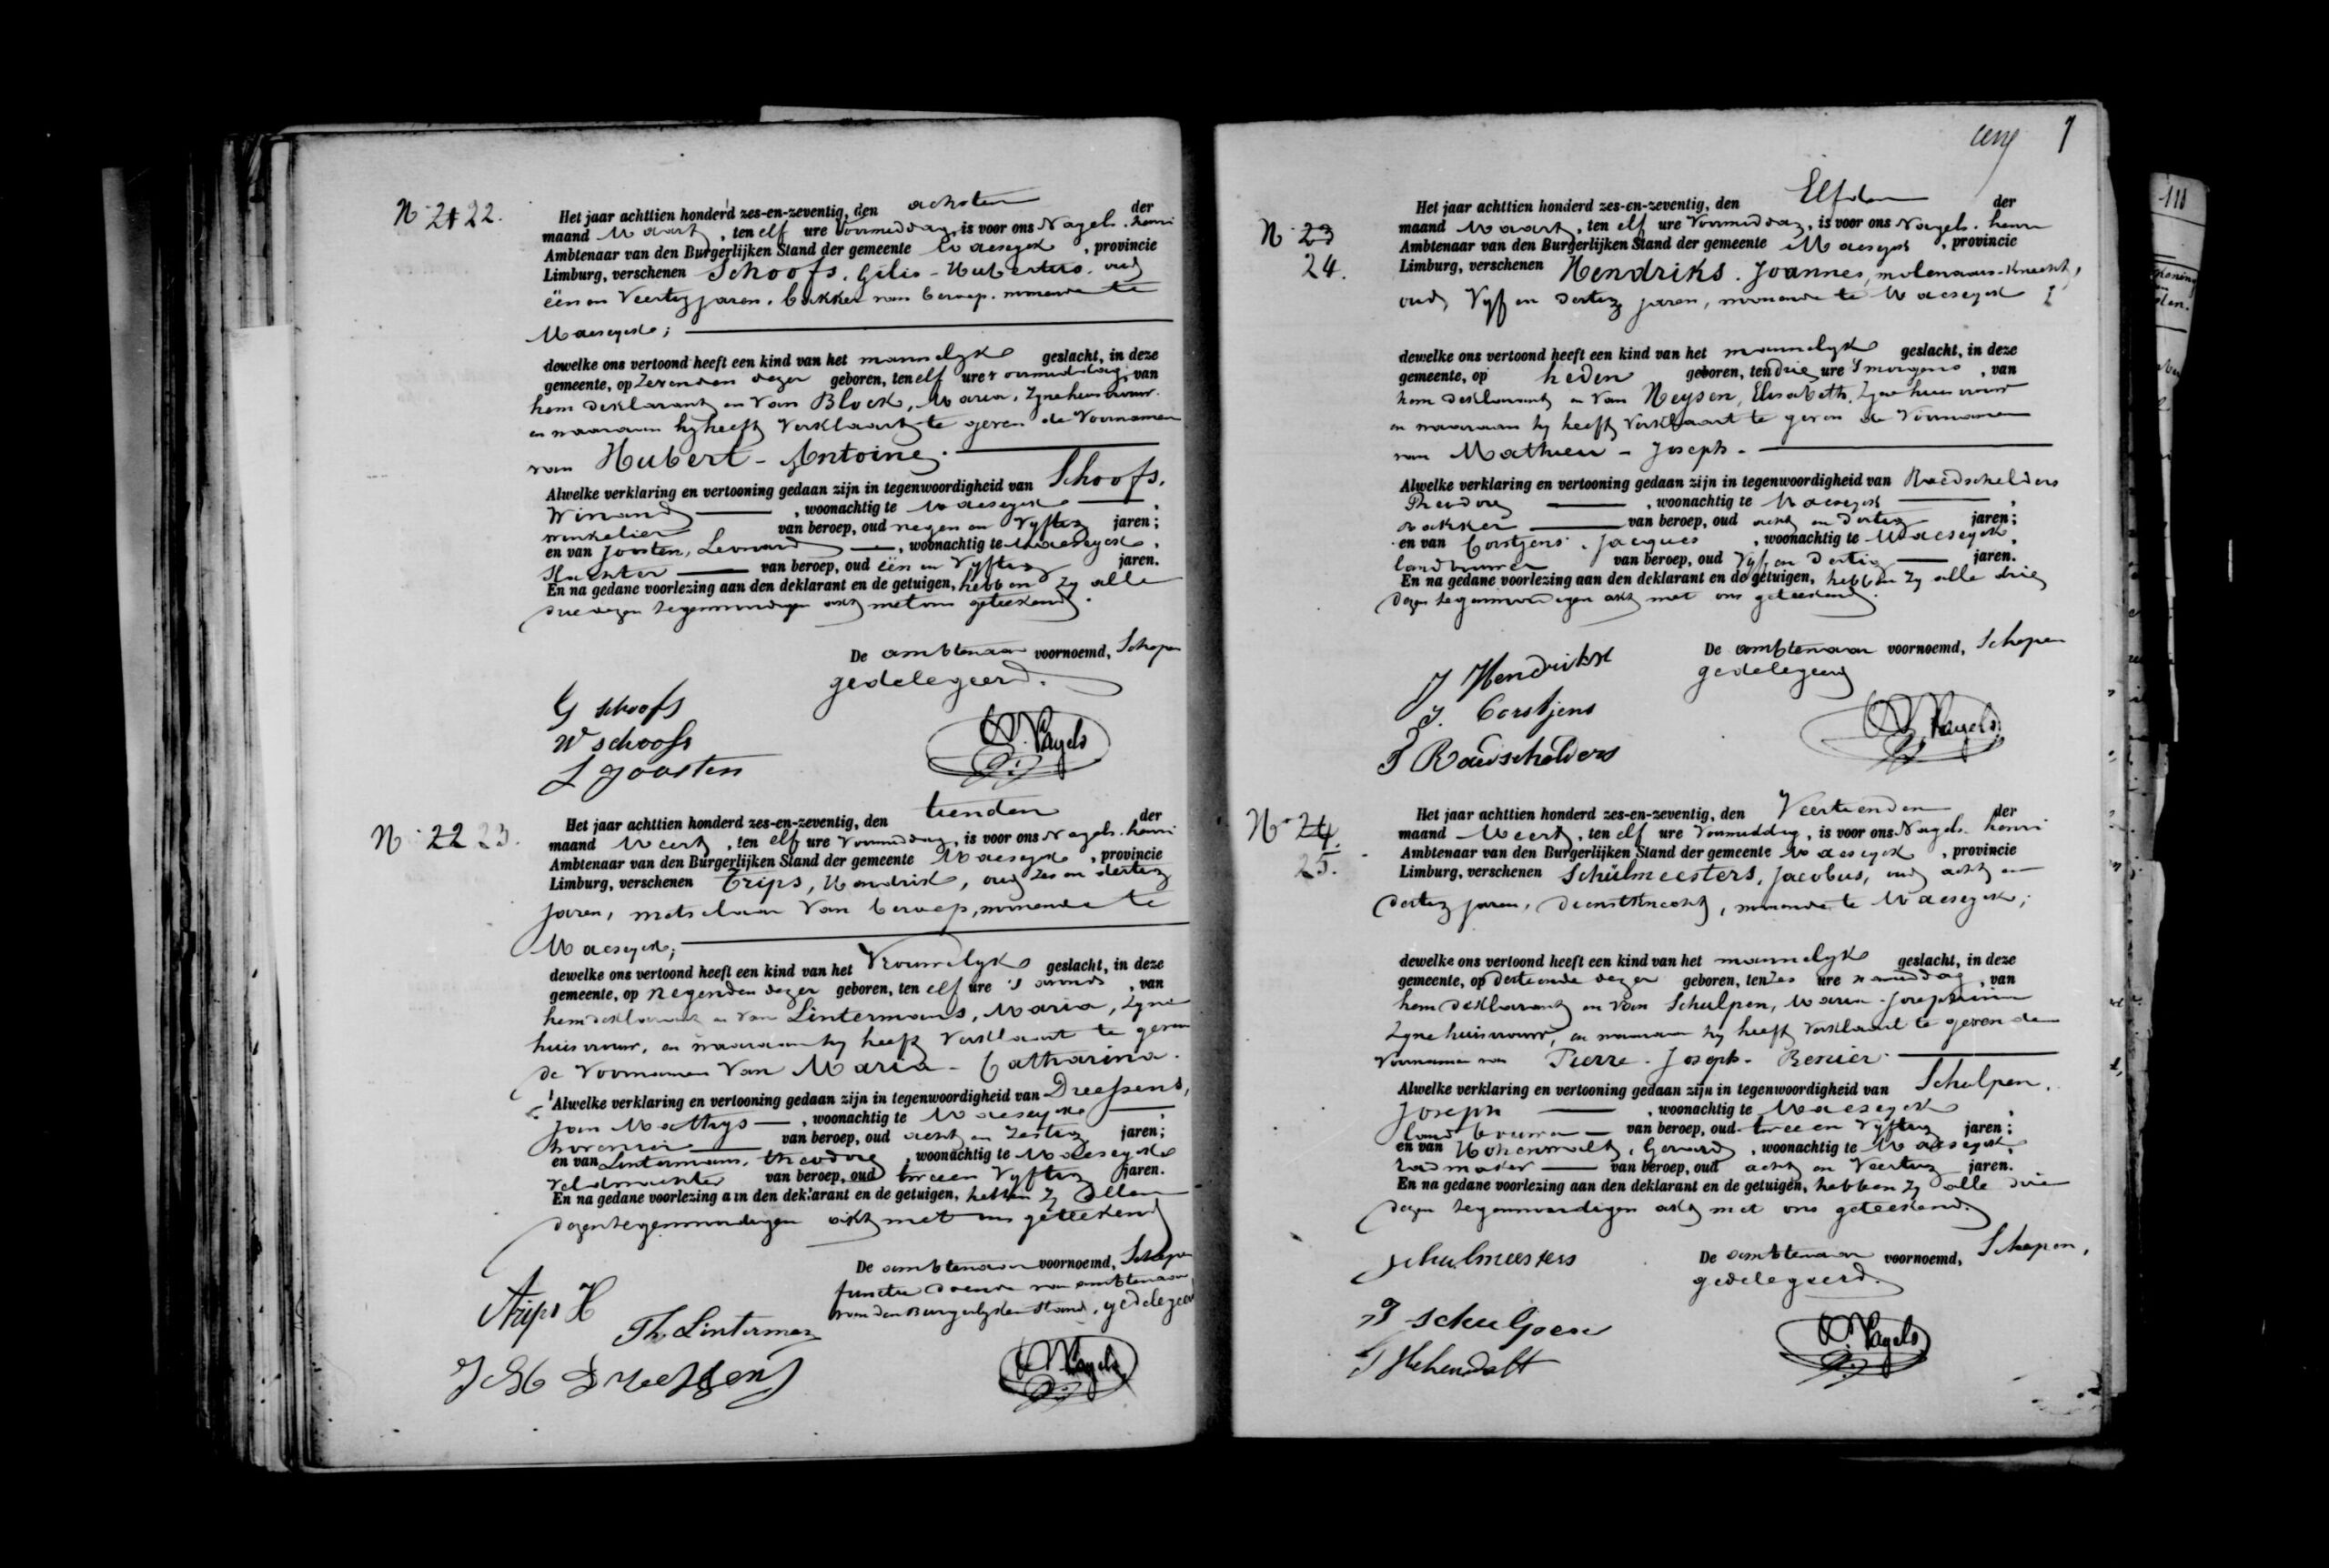 N° 21 22.
Het jaar achttien honderd zes-en-zeventig, den achsten der
maand Maart, ten elf ure Voormiddag, is voor ons Nagels. henri
Ambtenaar van den Burgerlijken Stand der gemeente Maeseyck, provincie
Limburg, verschenen Schoofs, Gilis-Hubertus, oud
één en Veertig jaren, bakker van beroep, wonende te
Maeseyck;
dewelke ons vertoond heeft een kind van het mannelyk geslacht, in deze
gemeente, op Zevenden dezer geboren, ten elf ure voormiddag, van
hem deklarant en van Block, Maria, Zyne huisvrouw.
en waaraan hy heeft Verklaart te geven de Voornamen
van Hubert-Antoine.
Alwelke verklaring en vertooning gedaan zijn in tegenwoordigheid van Schoofs,
Winand, woonachtig te Maeseyck,
winkelier van beroep, oud negen en Vyftig jaren;
en van Joosten, Leonard, woonachtig te Maeseyck,
van beroep, oud één en Vyftig jaren.
En na gedane voorlezing aan den deklarant en de getuigen, hebben Zy alle
drie dezen tegenwoordigen akt met ons geteekend.
De ambtenaar voornoemd, Schepen
gedelegeerd.
G schoofs
W schoofs
L Joosten
H. Nagels
N° 22 23.
Het jaar achttien honderd zes-en-zeventig, den tienden der
maand Meert, ten elf ure Voormiddag, is voor ons Nagels. henri
Ambtenaar van den Burgerlijken Stand der gemeente Maeseyck, provincie
Limburg, verschenen Trips, Hendrik, oud Zes en dertig
jaren, metselaar Van beroep, wonende te
Maeseyck;
dewelke ons vertoond heeft een kind van het Vrouwelyk geslacht, in deze
gemeente, op Negenden dezer geboren, ten elf ure 's avonds, van
hem deklarant en Van Lintermans, Maria, Zyne
huisvrouw, en waaraan hy heeft Verklaart te geven
de Voornamen Van Maria-Catharina.
Alwelke verklaring en vertooning gedaan zijn in tegenwoordigheid van Dreessens,
Jan Mathys, woonachtig te Maeseyck,
van beroep, oud acht en Zestig jaren;
en van Lintermans, theodore, woonachtig te Maeseyck
Veldwachter van beroep, oud twee en Vyftig jaren.
En na gedane voorlezing aan den deklarant en de getuigen, hebben Zy allen
dezen tegenwoordigen akt met ons geteekend
De ambtenaar voornoemd, Schepen
functie doende van ambtenaar
van den Burgerlyken Stand, gedelegeerd
Trips H
Th. Lintermans
J M Dreessens
H. Nagels
7
N° 23
24.
Het jaar achttien honderd zes-en-zeventig, den Elfden der
maand Maart, ten elf ure Voormiddag, is voor ons Nagels. henri
Ambtenaar van den Burgerlijken Stand der gemeente Maeseyck, provincie
Limburg, verschenen Hendriks. Joannes, molenaars-knecht,
oud Vyf en dertig jaren, wonende te Maeseyck
dewelke ons vertoond heeft een kind van het mannelyk geslacht, in deze
gemeente, op heden geboren, ten drie ure 's morgens, van
hem deklarant en Van Neysen, Elisabeth, Zyne huisvrouw
en waaraan hy heeft Verklaart te geven de Voornamen
van Mathieu-Joseph.
Alwelke verklaring en vertooning gedaan zijn in tegenwoordigheid van Raedschelders
Theodore, woonachtig te Maeseyck,
Bakker van beroep, oud acht en dertig jaren;
en van Corstjens, Jacques, woonachtig te Maeseyck,
landbouwer van beroep, oud Vyf en dertig jaren.
En na gedane voorlezing aan den deklarant en de getuigen, hebben Zy alle drie
dezen tegenwoordigen akt met ons geteekend.
De ambtenaar voornoemd, Schepen
gedelegeerd
J Hendriks
J. Corstjens
T Raedschelders
H. Nagels
N° 24.
25.
Het jaar achttien honderd zes-en-zeventig, den Veertienden der
maand Meert, ten elf ure Voormiddag, is voor ons Nagels. henri
Ambtenaar van den Burgerlijken Stand der gemeente Maeseyck, provincie
Limburg, verschenen Schülmeesters, Jacobus, oud acht en
dertig jaren, dienstknecht, wonende te Maeseyck;
dewelke ons vertoond heeft een kind van het mannelyk geslacht, in deze
gemeente, op dertiende dezer geboren, ten Zes ure namiddag, van
hem deklarant en Van Schulpen, Maria-Josephina
Zyne huisvrouw, en waaraan hy heeft Verklaart te geven de
Voornamen van Pierre-Joseph-Renier.
Alwelke verklaring en vertooning gedaan zijn in tegenwoordigheid van Schulpen,
Joseph, woonachtig te Maeseyck,
landbouwer van beroep, oud twee en Vyftig jaren;
en van, Gerard, woonachtig te Maeseyck,
radmaker van beroep, oud acht en Veertig jaren.
En na gedane voorlezing aan den deklarant en de getuigen, hebben Zy alle drie
dezen tegenwoordigen akt met ons geteekend.
De ambtenaar voornoemd, Schepen,
gedelegeerd.
schulmeesters
J schulpen
H. Nagels